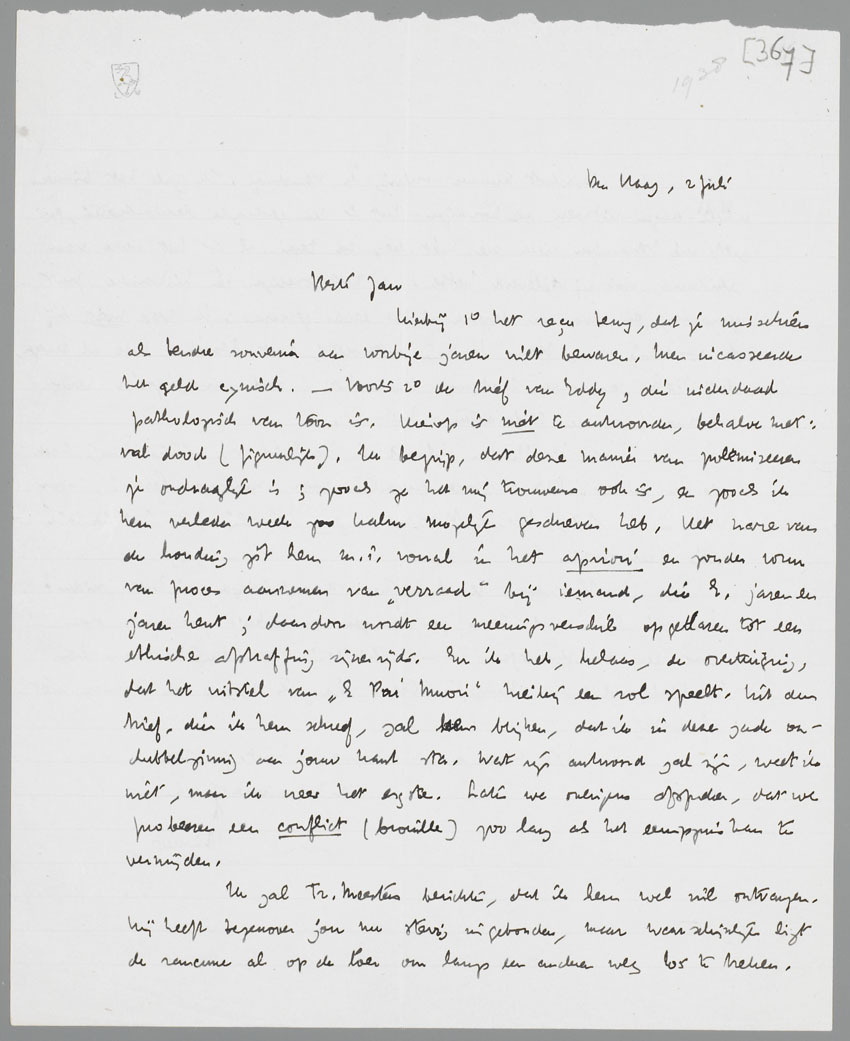 [367]
1938
Den Haag, 2 Juli
Beste Jan
Hierbij 1º het reçu terug, dat je misschien
als tendre souvenir aan vorige jaren wilt bewaren. Men incasseerde
het geld cynisch. — Voorts 2º de brief van Eddy, die inderdaad
pathologisch van toon is. Hierop is niet te antwoorden, behalve met:
val dood (figuurlijk). Ik begrijp, dat deze manier van polemiseeren
je ondraaglijk is; zooals ze het mij trouwens ook is, en zooals ik
hem verleden week zoo kalm mogelijk geschreven heb. Het nare van
de houding zit hem m.i. vooral in het apriori en zonder vorm
van proces aannemen van „verraad" bij iemand, die E. jaren en
jaren kent; daardoor wordt een meeningsverschil opgeblazen tot een
ethische afstraffing zijnerzijds. En ik heb, helaas, de overtuiging,
dat het uitstel van „E Poi Muori" hierbij een rol speelt. Uit den
brief, dien ik hem schreef, zal hem blijken, dat ik in deze zaak on-
dubbelzinnig aan jouw kant sta. Wat zijn antwoord zal zijn, weet ik
niet, maar ik vrees het ergste. Laten we overigens afspreken, dat we
probeeren een conflict (brouille) zoo lang als het eenigszins kan te
vermijden.
Ik zal Tr. Meertens berichten, dat ik hem wel wil ontvangen.
Hij heeft tegenover jou nu stevig ingebonden, maar waarschijnlijk ligt
de rancune al op de loer om langs een anderen weg los te breken.